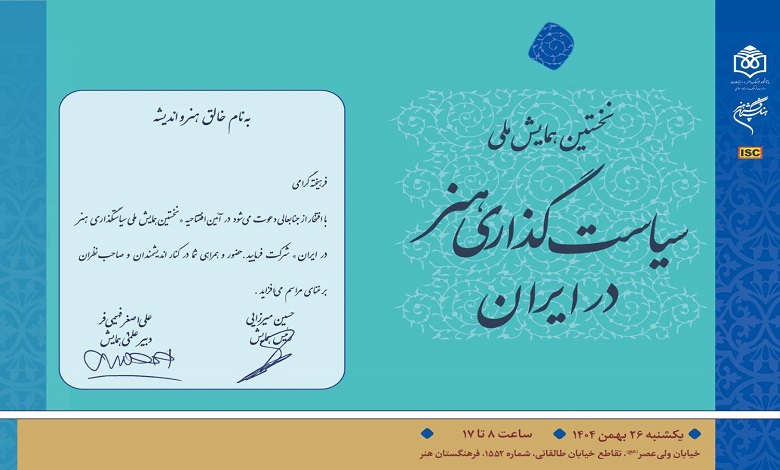 نخستین همایش ملی
سیاست‌گذاری هنر
در ایران
ISC
به نام خالق هنر و اندیشه
فرهیخته گرامی
با افتخار از جنابعالی دعوت می‌شود در آئین افتتاحیه «نخستین همایش ملی سیاستگذاری هنر
در ایران» شرکت فرمایید. حضور و همراهی شما در کنار اندیشمندان و صاحب‌نظران
بر غنای مراسم می‌افزاید.
حسین میرزایی
رئیس همایش
علی‌اصغر فهیمی‌فر
دبیر علمی همایش
یکشنبه ۲۶ بهمن ۱۴۰۴
ساعت ۸ تا ۱۷
خیابان ولی‌عصر(عج)، تقاطع خیابان طالقانی، شماره ۱۵۵۲، فرهنگستان هنر